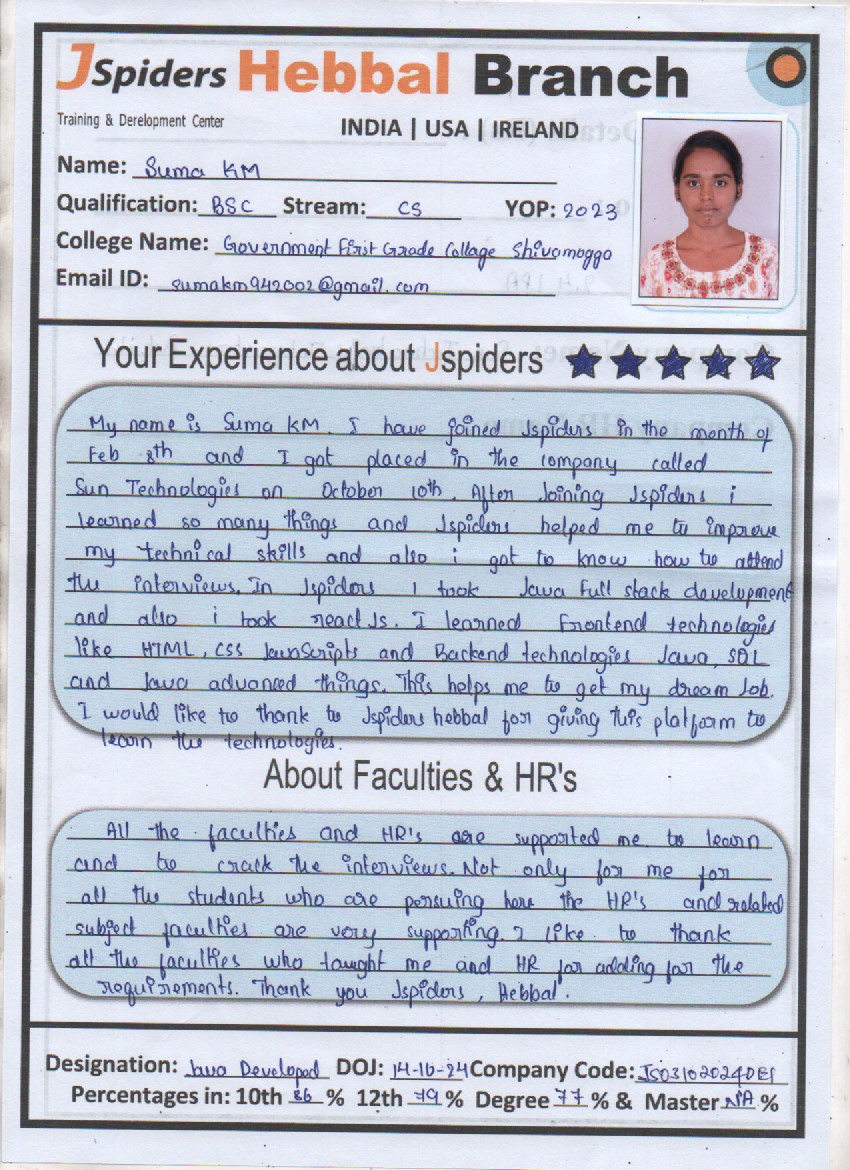 JSpiders Hebbal Branch
Training & Derelopment Center
INDIA | USA | IRELAND
Name: Suma KM
Qualification: BSC Stream: CS YOP: 2023
College Name: Government First Grade Collage Shivamogga
Email ID: sumakm942002@gmail.com
Your Experience about Jspiders
My name is Suma KM. I have joined Jspiders in the month of
Feb 8th and I got placed in the company called
Sun Technologies on October 10th. After Joining Jspiders i
learned so many things and Jspiders helped me to improve
my technical skills and also i got to know how to attend
the interviews. In Jspiders I took Java Full stack development
and also i took react Js. I learned Frontend technologies
like HTML, CSS JavaScripts and Backend technologies Java, SQL
and Java advanced things. This helps me to get my dream Job.
I would like to thank to Jspiders hebbal for giving this platform to
learn the technologies.
About Faculties & HR's
All the faculties and HR's are supported me to learn
and to crack the interviews. Not only for me for
all the students who are persuing here the HR's and related
subject faculties are very supporting. I like to thank
all the faculties who taught me and HR for adding for the
requirements. Thank you Jspiders, Hebbal.
Designation: Java Developed DOJ: 14-10-24 Company Code:
Percentages in: 10th 86 % 12th 79 % Degree 77 % & Master NA %